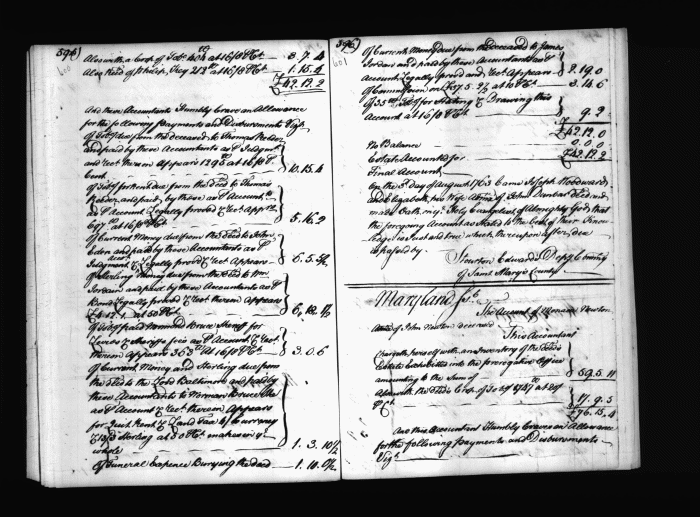 394)
600
Also with a Crop of Tobo 404 at 16/8 Pct 3.7.4
Also Recd of Philip Key 212 at 16/8 Pct 1.15.4
£42.12.2
And these Accountants Humbly Crave an Allowance
for the following Payments and Disbursements Vizt
Of Tobo due from the deceased to Thomas Reeder
and paid by these Accountants as P Judgmt
and rect thereon Appears 1293 at 16/8 P
Cent 10.15.4
Of Tobo for Rent due from the Decd to Thomas
Reeder and paid by these as P Accountts
as P Account Legally proved & rect Appears
697 at 16/8 5.16.2
Of Current Money due from the Decd to John
Eden and paid by these Accountants as P
Judgment Legally proved & rect Appears 5.5.5½
Of Sterling Money due from the Decd to Wm
Jordan and paid by these Accountants as P
Bond Legally proved & rect thereon Appears
£4.12.1 at 50 Pct 6.18.1½
Of Tobo paid Norman Bruce Sheriff for
Levies & Sheriffs fees as P Account & rect
thereon Appears 363 at 16/8 Pct 3.0.6
Of Current Money and Sterling due from
the Decd to the Lord Baltimore and paid by
these Accountants to Norman Bruce
as P Account & rect thereon Appears
for Quit Rent & Land Tax Currency
& Sterling at Pct making in ye
whole 1.3.10½
Of Funeral Expence Burying the dead 1.10.0½
395)
601
Of Current Money due from the deceased to James
Jordan and paid by these Accountants as P
Account Legally proved and rect Appears 2.19.0
Of Commission on £37.5.9½ at 10 Pct 3.14.6
Of Tobo for Stating & Drawing this
Account at 16/8 Pct 9.2
£42.12.0
No Balance 0.0.0
Estate Accounted for £42.12.2
Final Account
On the 3d day of August 1763 Came Joseph Woodward
and Elizabeth his Wife Admx of John Dunbar Decd and
made Oath on ye Holy Evangelist of Almighty God that
the foregoing Account as Stated to the best of their Know
ledge is Just and true which thereupon after due
is passed by
Newton Edwards Depy Commy
of Saint Marys County
Maryland Sct
The Account of Monica Newton
Admx of John Newton deceased
This Accountant
Chargeth herself with an Inventory of the Decds
Estate Exhibited into the prerogative Office
amounting to the Sum of 59.5.11
Also with the Decds Crop of Tobo at
Pct 17.9.5
£76.15.4
And this Accountant Humbly Craves an Allowance
for the following Payments and Disbursements
Vizt